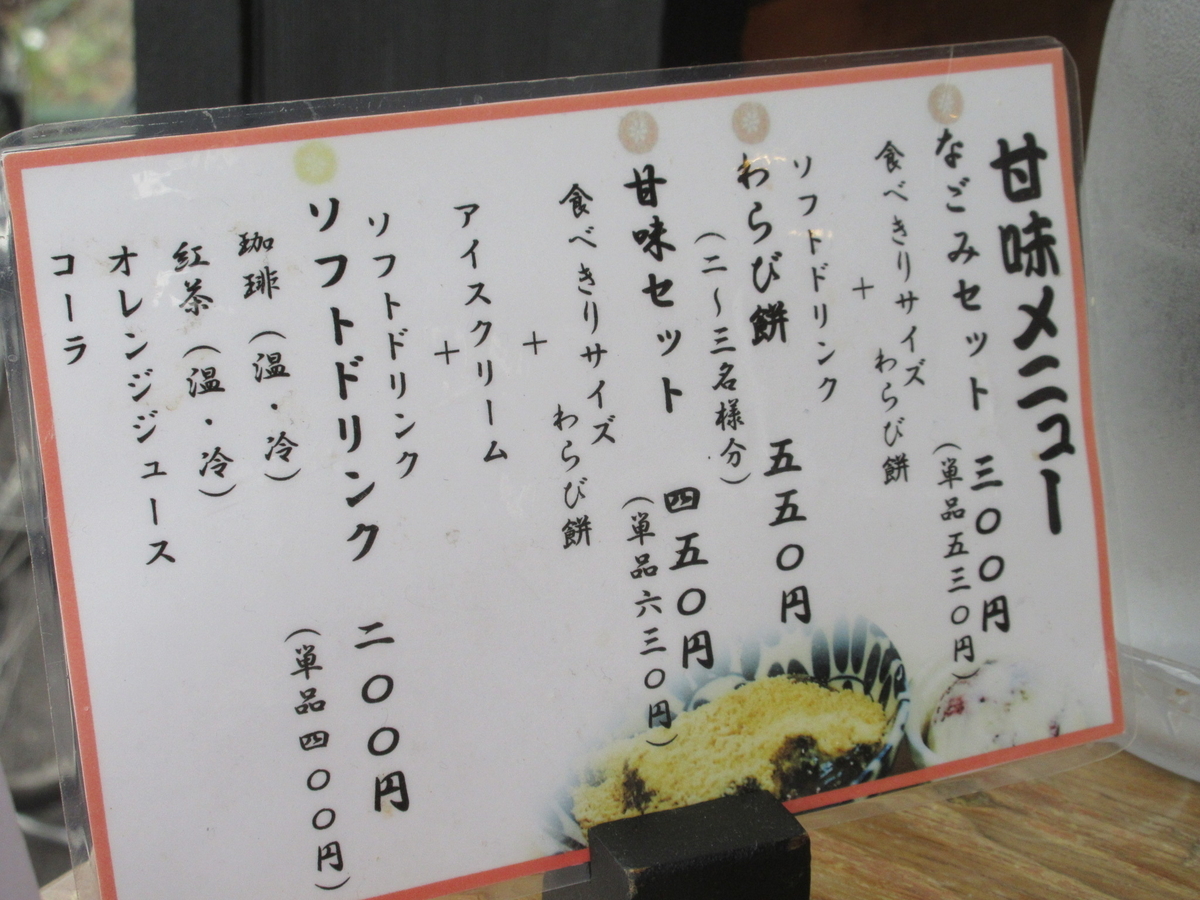 甘味メニュー
なごみセット 三〇〇円
(単品五三〇円)
食べきりサイズ
わらび餅
+
ソフトドリンク
わらび餅 五五〇円
(二〜三名様分)
甘味セット 四五〇円
(単品六三〇円)
食べきりサイズ
わらび餅
+
アイスクリーム
+
ソフトドリンク
ソフトドリンク 二〇〇円
(単品四〇〇円)
珈琲(温・冷)
紅茶(温・冷)
オレンジジュース
コーラ